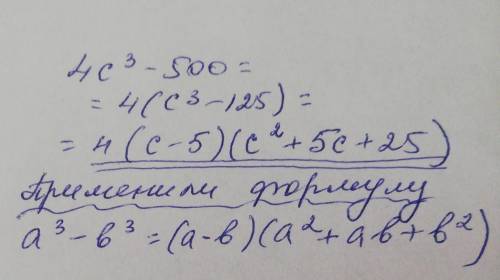 4c³ - 500 =
= 4(c³ - 125) =
= 4(c - 5)(c² + 5c + 25)
Применили формулу
a³ - b³ = (a - b)(a² + ab + b²)